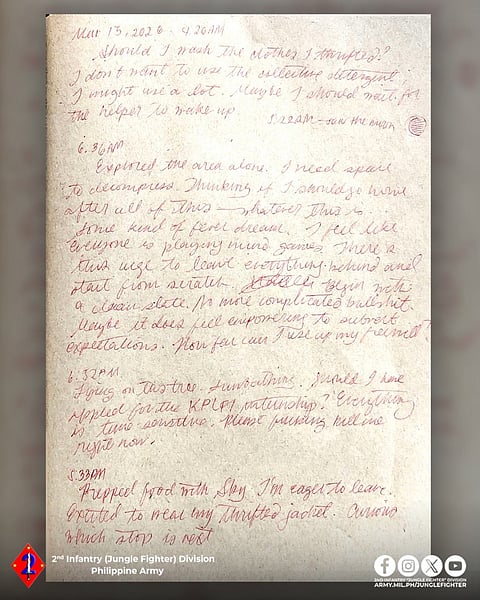 Mar 13, 2026 4:26AM
Should I wash the clothes I thrifted?
I don't want to use the collective detergent
I might use a lot. Maybe I should wait for
the helper to wake up.
5:22AM - saw the moon
6:36AM
Explored the area alone. I need space
to decompress. Thinking if I should go home
after all of this — whatever this is...
Some kind of fever dream. I feel like
everyone is playing mind games. There's
this urge to leave everything behind and
start from scratch. Begin with
a clean slate. No more complicated bullshit.
Maybe it does feel empowering to subvert
expectations. How far can I use up my freewill?
on this tree. Sunbathing. Should I have
applied for the internship? Everything
is time-sensitive. Please fucking kill me
right now.
5:33AM
Prepped food with Sky. I'm eager to leave.
Excited to wear my thrifted jacket. Curious
which stop is next
2nd Infantry (Jungle Fighter) Division
Philippine Army
2ND INFANTRY "JUNGLE FIGHTER" DIVISION
ARMY.MIL.PH/JUNGLEFIGHTER